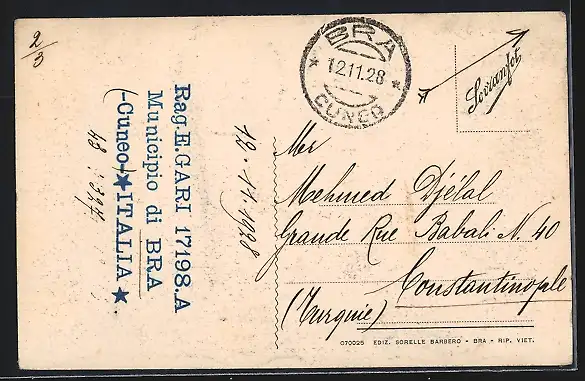 2/3
BRA
12.11.28
CUNEO
Rag. E. GARI 17198.A
Municipio di BRA
(-Cuneo-) ★ ITALIA ★
12.11.1928
Mr
Mehmed Djélal
Grande Rue Babali N. 40
Constantinople
(Turquie)
070025 EDIZ. SORELLE BARBERO - BRA - RIP. VIET.